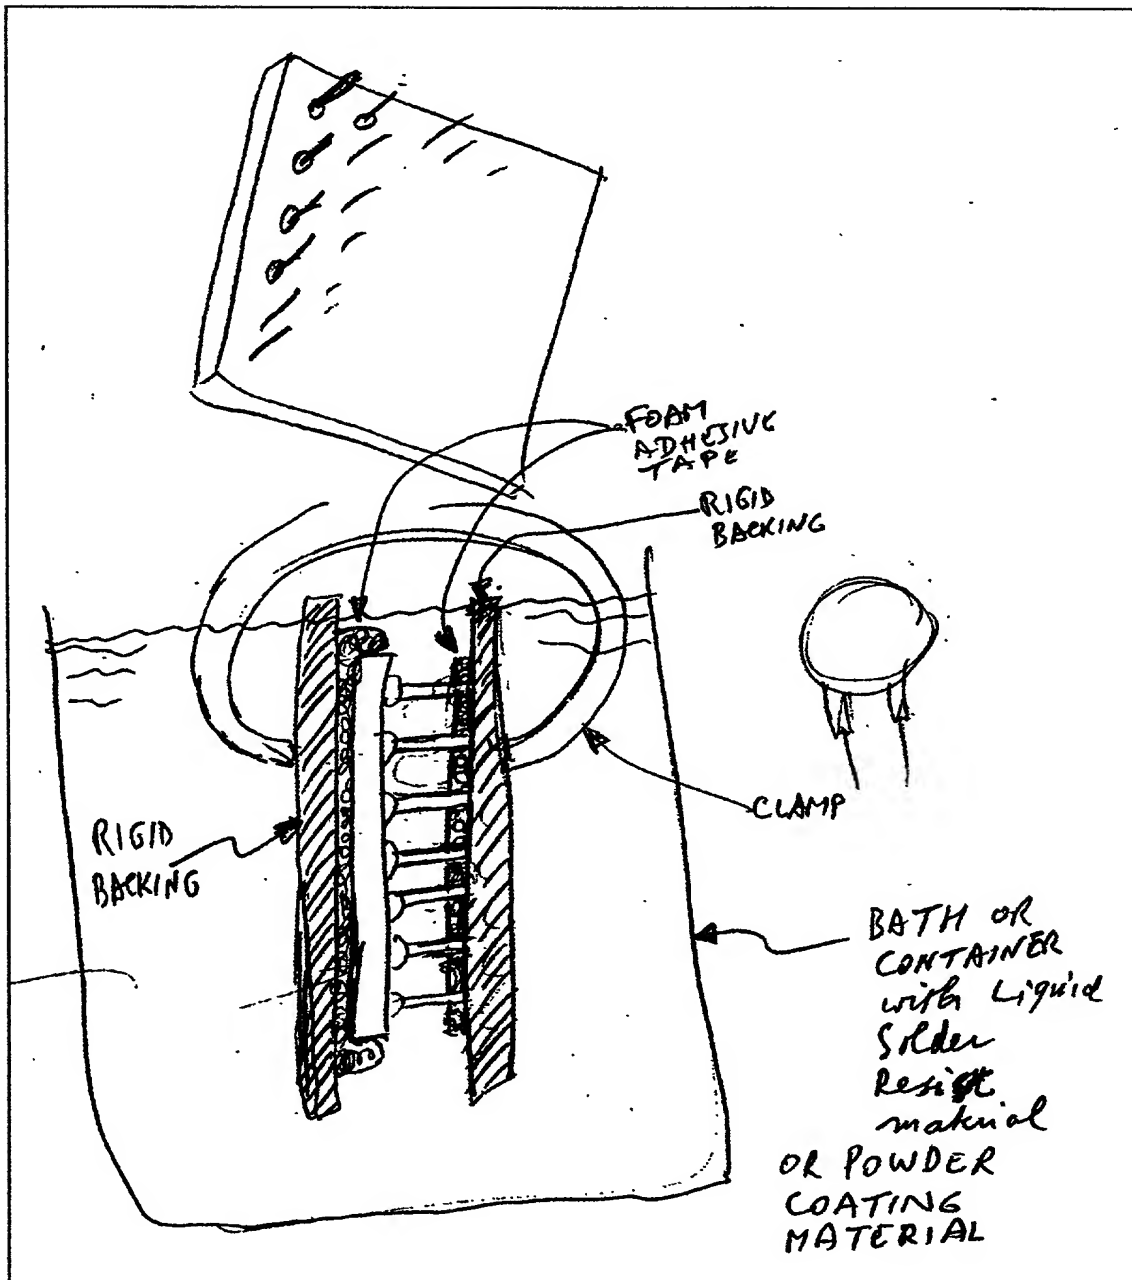 FOAM
ADHESIVE
TAPE
RIGID
BACKING
CLAMP
RIGID
BACKING
BATH OR
CONTAINER
with Liquid
Solder
Resist
material
OR POWDER
COATING
MATERIAL